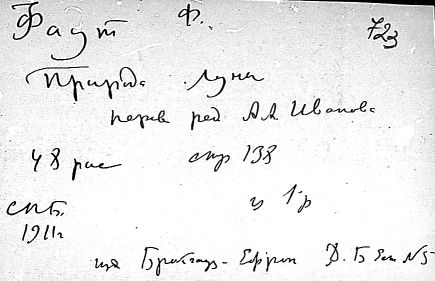 Фаут Ф. 723
Природа Луны
перев ред А.А. Иванова
48 рис стр 138
ц 1 р
СПБ.
1911г
изд Брокгауз-Ефрон Д. Б № 5